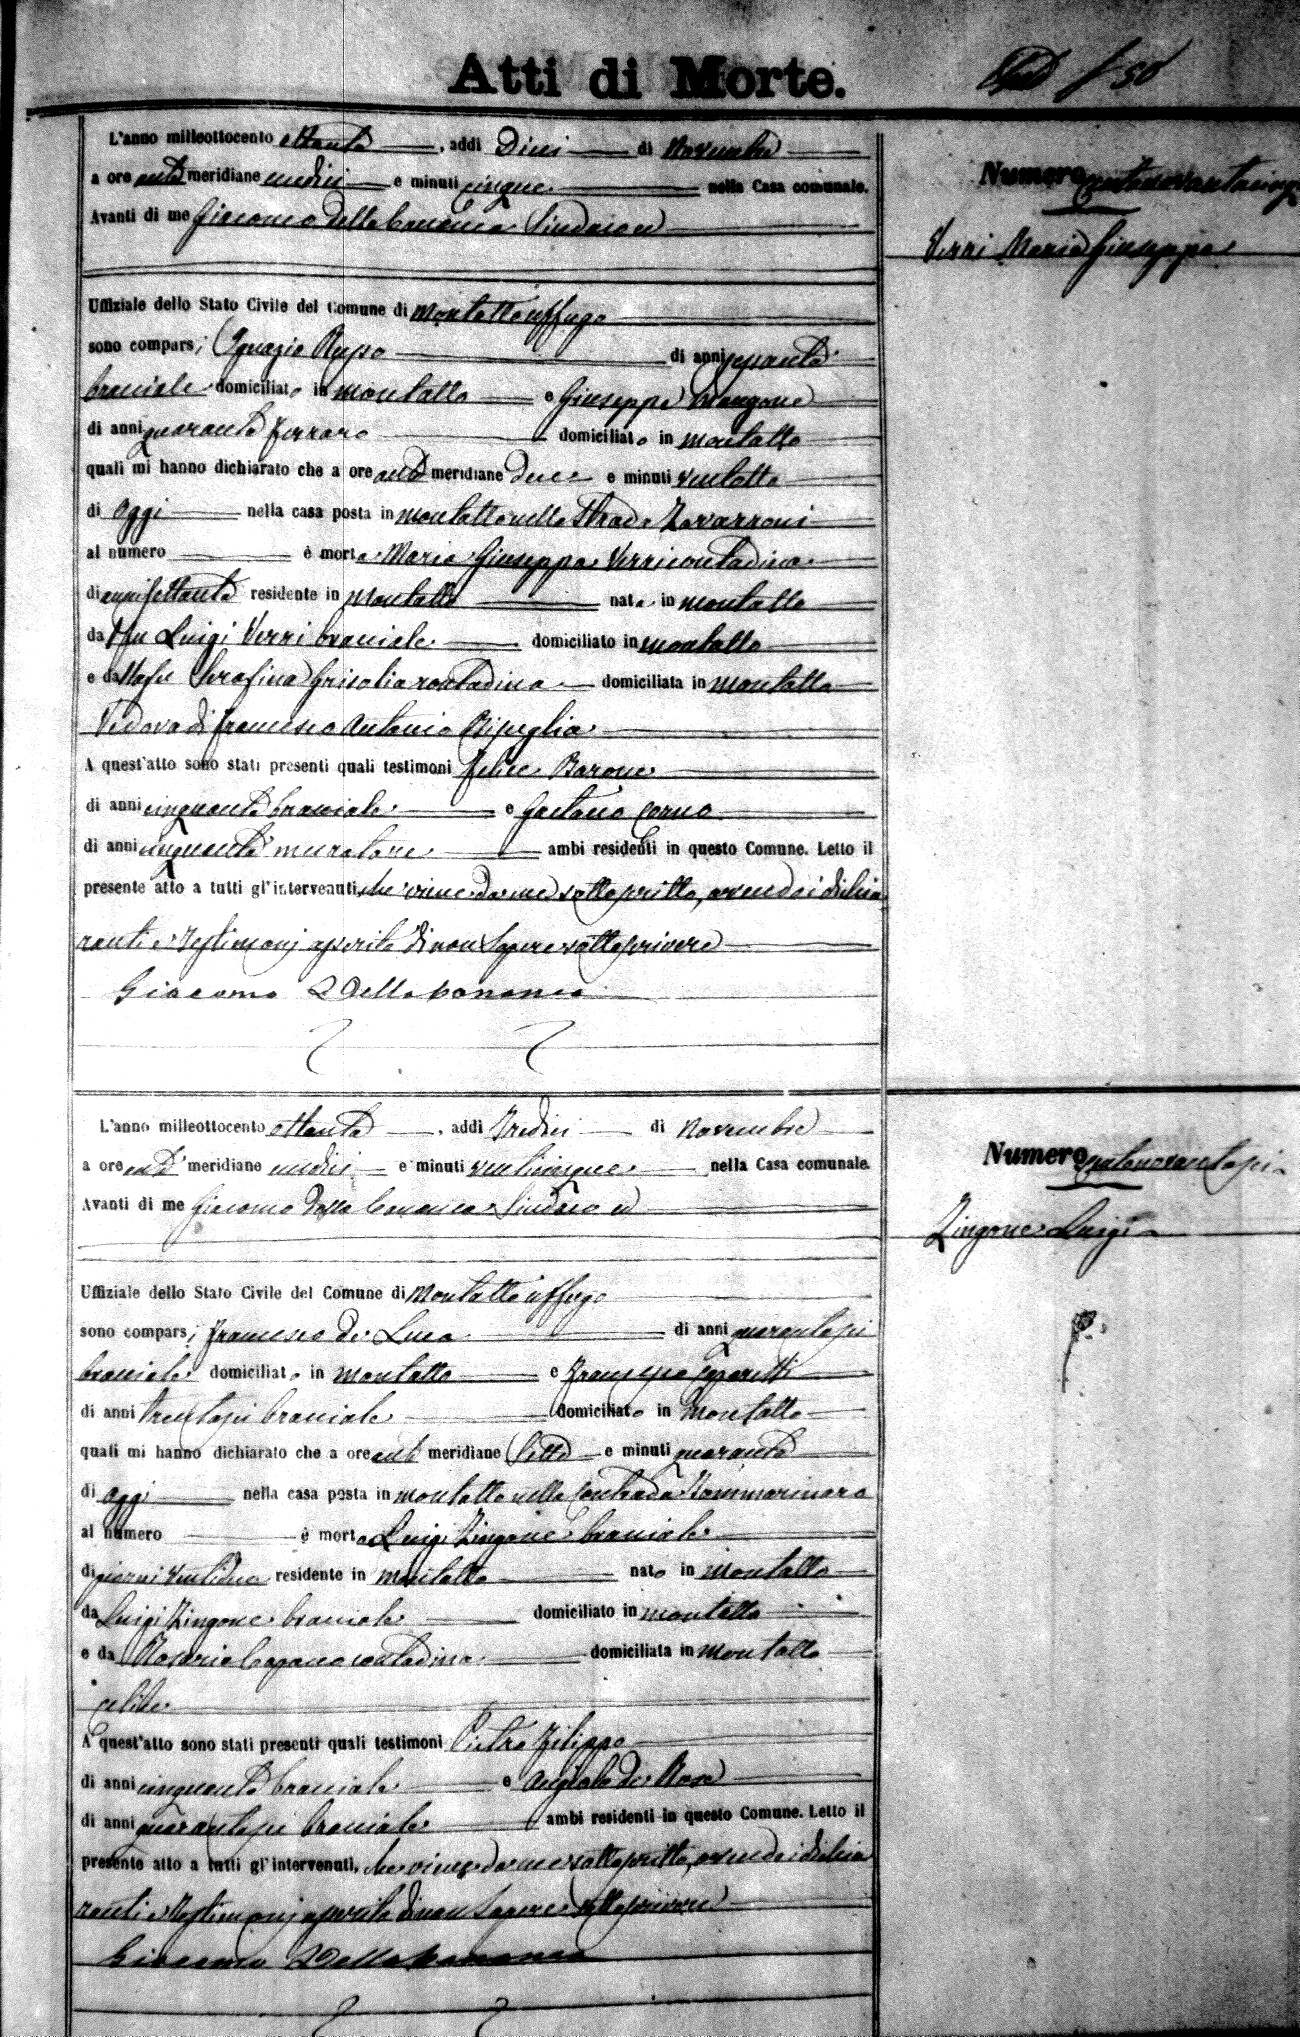 Atti di Morte.
50
L'anno milleottocento ottanta, addi Dieci di Novembre
a ore anti meridiane undici e minuti cinque nella Casa comunale.
Avanti di me Giacomo Della Cananea Sindaco ed
Numero centonovantacinque
Verri Maria Giuseppa
Uffiziale dello Stato Civile del Comune di Montalto Uffugo
sono comparsi Ignazio Russo di anni sessanta
bracciale domiciliato in Montalto e Giuseppe Mangone
di anni quaranta ferraro domiciliato in Montalto
quali mi hanno dichiarato che a ore anti meridiane due e minuti ventotto
di Oggi nella casa posta in Montalto nella Strada Zavarroni
al numero è morta Maria Giuseppa Verri contadina
di anni settanta residente in Montalto nata in Montalto
da fu Luigi Verri bracciale domiciliato in Montalto
e dalla fu Serafina Grisolia contadina domiciliata in Montalto
Vedova di Francesco Antonio
A quest'atto sono stati presenti quali testimoni Felice Barone
di anni cinquanta bracciale e Gaetano Corno
di anni cinquanta muratore ambi residenti in questo Comune. Letto il
presente atto a tutti gl'intervenuti, che viene da me sottoscritto, avendo i dichia
ranti e Testimonj asserito di non sapere sottoscrivere
Giacomo Della Cananea
L'anno milleottocento ottanta, addi Tredici di Novembre
a ore anti meridiane undici e minuti venticinque nella Casa comunale.
Avanti di me Giacomo Della Cananea Sindaco ed
Numero centonovantasei
Zingone Luigi
Uffiziale dello Stato Civile del Comune di Montalto Uffugo
sono comparsi Francesco de Luca di anni quarantasei
bracciale domiciliato in Montalto e Francesco
di anni trentasei bracciale domiciliato in Montalto
quali mi hanno dichiarato che a ore anti meridiane sette e minuti quaranta
di Oggi nella casa posta in Montalto nella Contrada
al numero è morto Luigi Zingone bracciale
di giorni ventidue residente in Montalto nato in Montalto
da Luigi Zingone bracciale domiciliato in Montalto
e da Rosaria contadina domiciliata in Montalto
celibe
A quest'atto sono stati presenti quali testimoni Pietro Filippo
di anni cinquanta bracciale e Angiolo de Rose
di anni quarantasei bracciale ambi residenti in questo Comune. Letto il
presente atto a tutti gl'intervenuti, che viene da me sottoscritto, avendo i dichia
ranti e Testimonj asserito di non sapere sottoscrivere
Giacomo Della Cananea